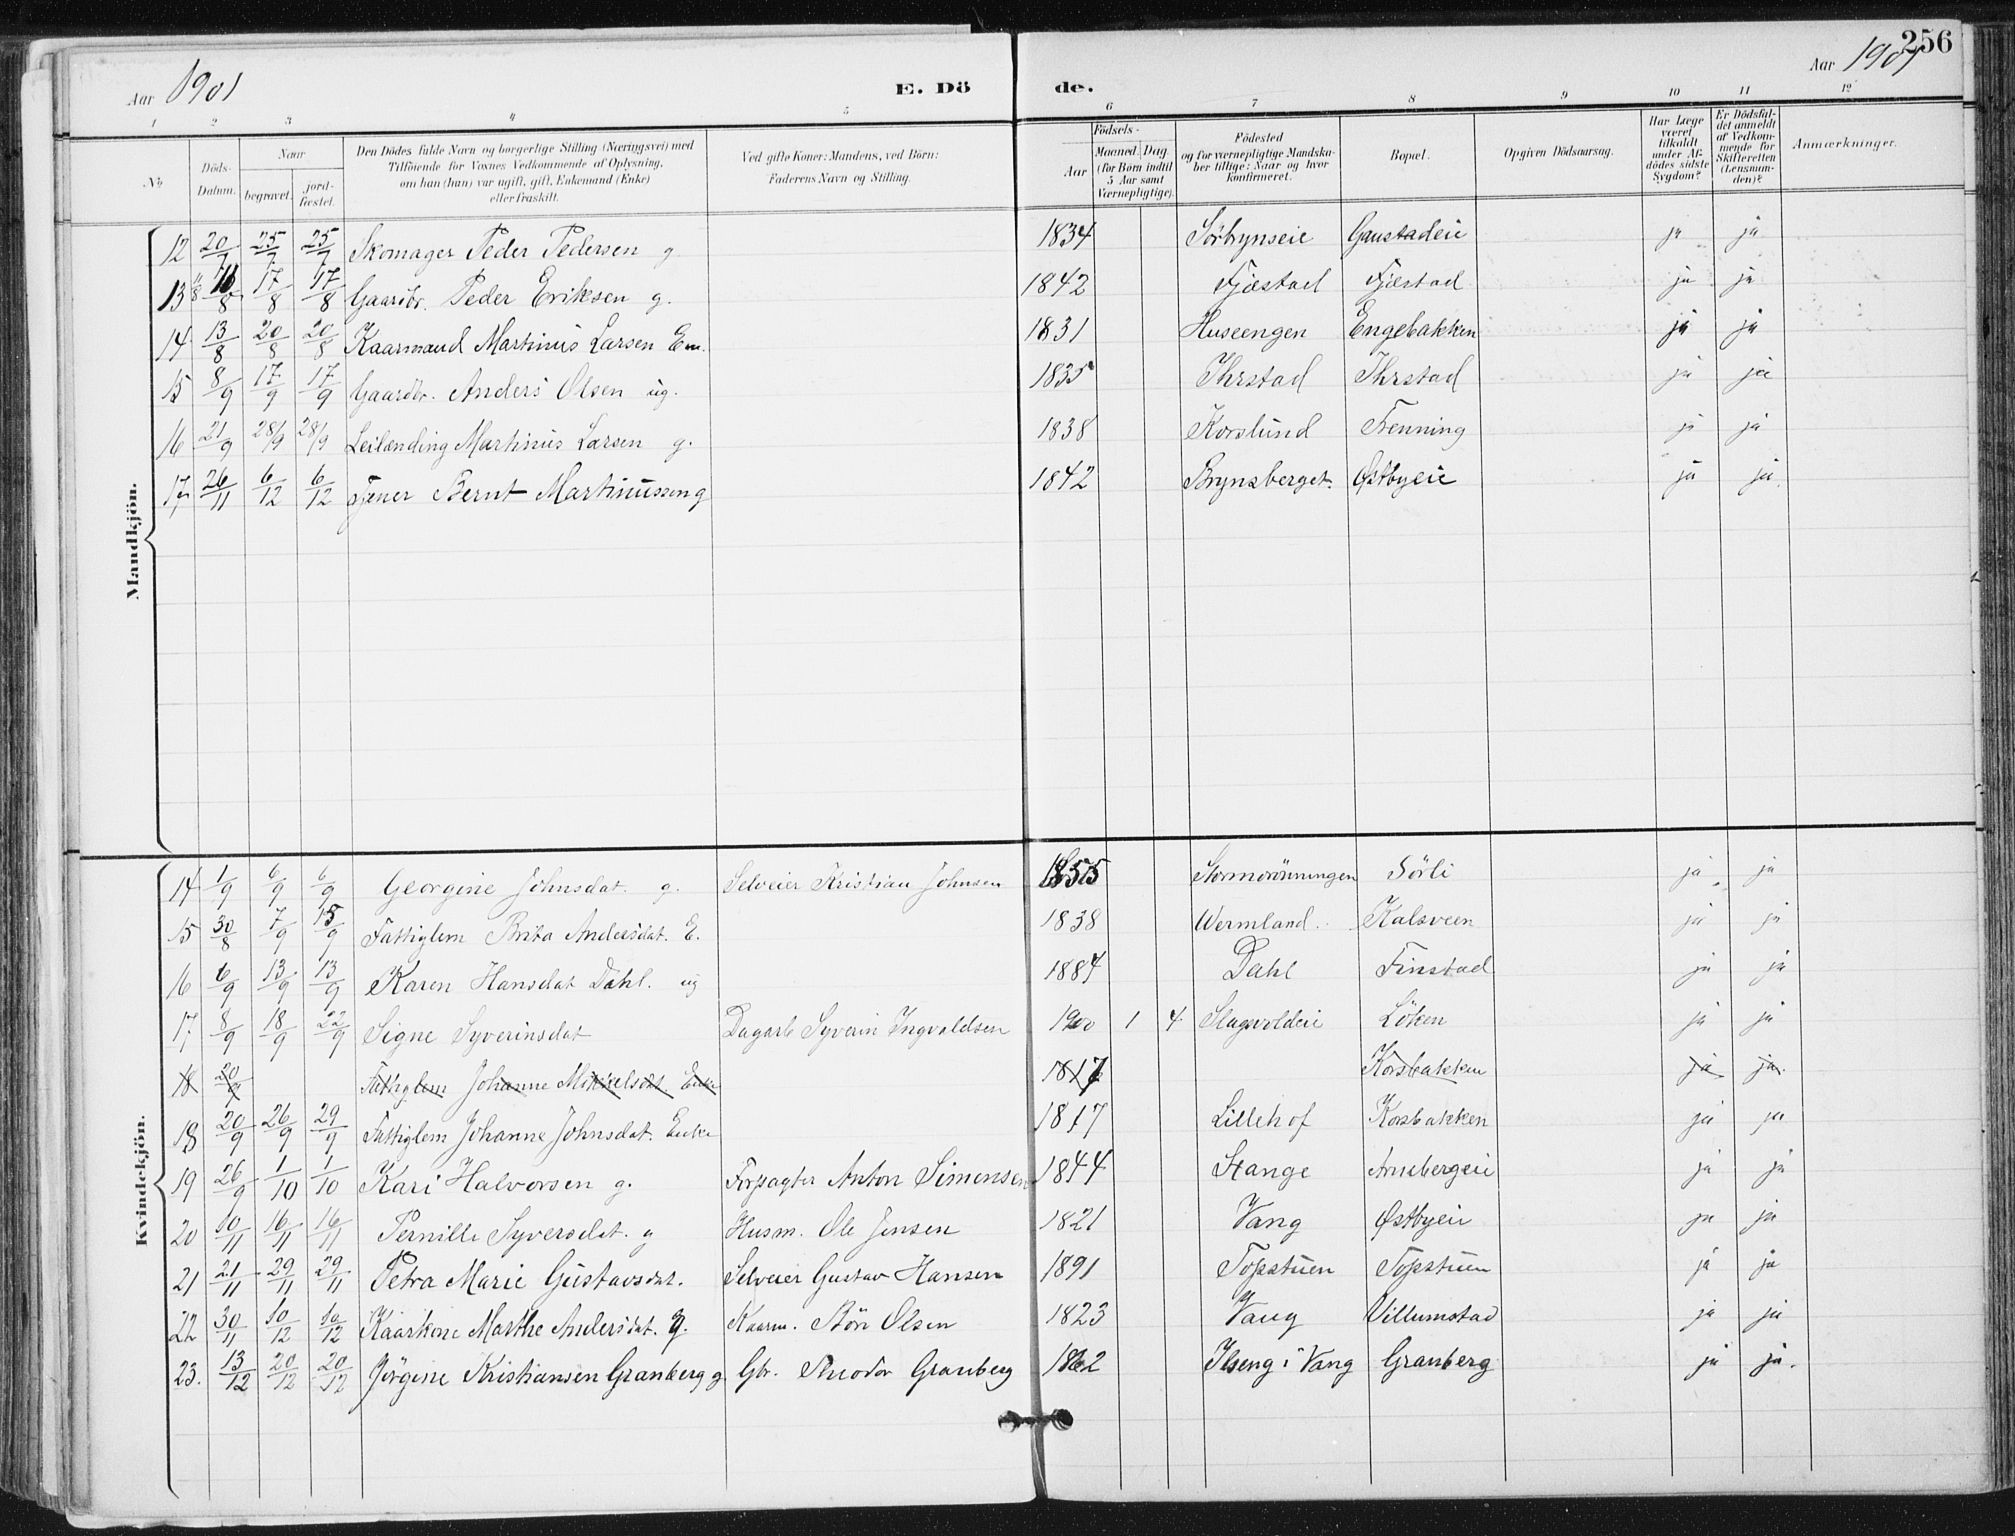 256
Aar 1901 E. Dö de. Aar 1901
1 2 3 4 5 6 7 8 9 10 11 12
No Döds-Datum. Naar begravet. jord-fæstet. Den Dödes fulde Navn og borgerlige Stilling (Næringsvei) med Tilföiende for Voxnes Vedkommende af Oplysning, om han (hun) var ugift, gift, Enkemand (Enke) eller fraskilt. Ved gifte Koner: Mandens, ved Börn: Faderens Navn og Stilling. Födsels- Aar Maaned. Dag. (for Børn indtil 5 Aar samt Værnepligtige). Födested og for værnepligtige Mandska-ber tillige: Naar og hvor konfirmeret. Bopæl. Opgiven Dödsaarsag. Har Læge været tilkaldt under Af-dödes sidste Sygdom? Er Dödsfal-det anmeldt af Vedkom-mende for Skifteretten (Lensman-den)? Anmærkninger.
Mandkjön.
12 20/7 25/7 25/7 Skomager Peder Pedersen g 1834 Sörbynseie Gaustadeie ja ja
13 11/8 17/8 17/8 Gaardbr. Peder Eriksen g. 1842 Fjæstad Fjæstad ja ja
14 13/8 20/8 20/8 Kaarmand Martinus Larsen Em. 1831 Huseengen Engebakken ja ja
15 8/9 17/9 17/9 Gaardbr. Anders Olsen ug. 1835 Ihrstad Ihrstad ja ja
16 21/9 28/9 28/9 Leilænding Martinus Larsen g. 1838 Korslund Frenning ja ja
17 26/11 6/12 6/12 Tjener Bernt Martinussen g 1842 Brynsberget. Østbyeie ja ja.
Kvindekjön.
14 1/9 6/9 6/9 Georgine Johnsdat. g. Selveier Kristian Johnsen 1855 Stormorönningen Sörli ja ja
15 30/8 7/9 15/9 Fattiglem Brita Andersdat. E. 1838 Wermland. Kalsveen ja ja
16 6/9 13/9 13/9 Karen Hansdat Dahl. ug 1884 Dahl Finstad ja ja
17 8/9 18/9 22/9 Signe Syverinsdat Dagarb Syverin Ingvaldsen 1900 1 4 Slagsvoldeie Löken ja ja
18 20/9 Fattiglem Johanne Mikkelsdat. Enke 1817 Korsbakken ja ja.
18 20/9 26/9 29/9 Fattiglem Johanne Johnsdat. Enke 1817 Lillehof Korsbakken ja ja
19 26/9 1/10 1/10 Kari Halvorsen g. Forpagter Anton Simensen 1844 Stange Arnebergeie ja ja
20 10/11 16/11 16/11 Pernille Syversdat. g Husm. Ole Jensen 1821 Vang Østbyeie ja ja
21 21/11 29/11 29/11 Petra Marie Gustavsdat. Selveier Gustav Hansen 1891 Topstuen Topstuen ja ja
22 30/11 10/12 10/12 Kaarkone Marthe Andersdat. g. Kaarm. Börr Olsen 1823 Vang Villumstad ja ja
23. 13/12 20/12 20/12 Jörgine Kristiansen Granberg g. Gbr. Theodor Granberg 1862 Ilseng i Vang Granberg ja ja.